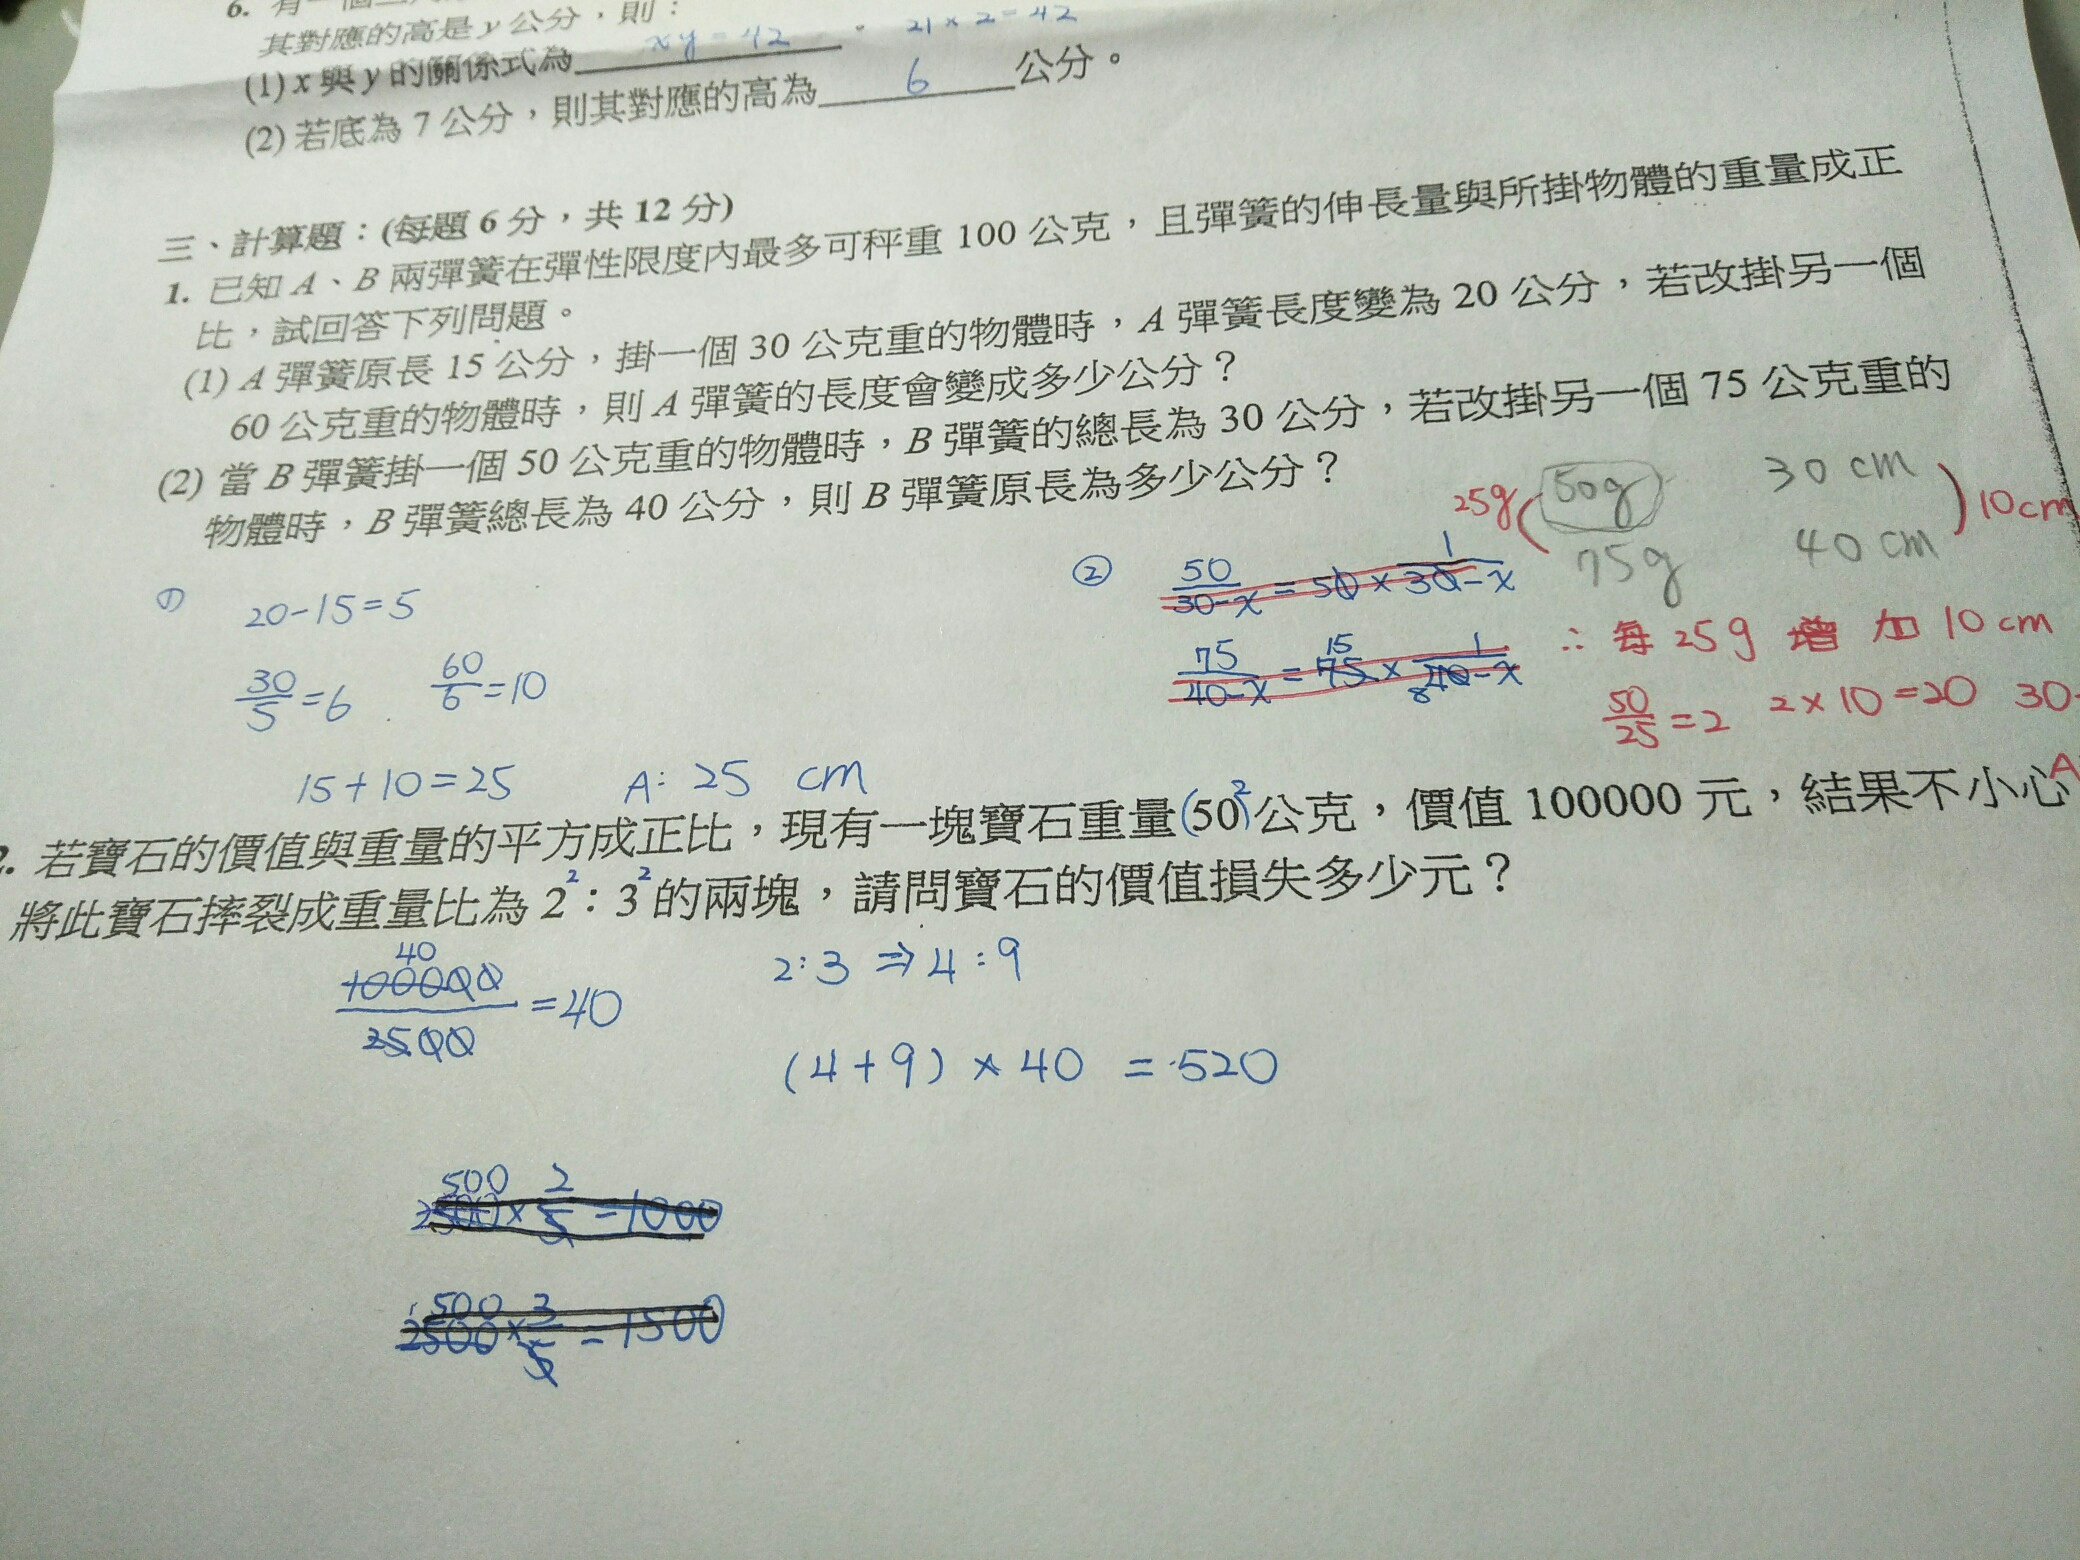 6. 有一個
其對應的高是 y 公分，則：
(1) x 與 y 的關係式為 xy = 42 。 21 × 2 = 42
(2) 若底為 7 公分，則其對應的高為 6 公分。
三、計算題：(每題 6 分，共 12 分)
1. 已知 A、B 兩彈簧在彈性限度內最多可秤重 100 公克，且彈簧的伸長量與所掛物體的重量成正
比，試回答下列問題。
(1) A 彈簧原長 15 公分，掛一個 30 公克重的物體時，A 彈簧長度變為 20 公分，若改掛另一個
60 公克重的物體時，則 A 彈簧的長度會變成多少公分？
(2) 當 B 彈簧掛一個 50 公克重的物體時，B 彈簧的總長為 30 公分，若改掛另一個 75 公克重的
物體時，B 彈簧總長為 40 公分，則 B 彈簧原長為多少公分？
25g 50g 30 cm 10cm
75g 40 cm
① 20-15=5
30/5=6 60/6=10
15+10=25 A: 25 cm
② 50/30-x = 50 × 1/30-x
75/40-x = 75 × 1/40-x
15
8
∴ 每 25g 增加 10 cm
50/25=2 2×10=20 30-
A
2. 若寶石的價值與重量的平方成正比，現有一塊寶石重量(50)² 公克，價值 100000 元，結果不小心
將此寶石摔裂成重量比為 2² : 3² 的兩塊，請問寶石的價值損失多少元？
40
100000/2500 = 40
2:3 ⇒ 4:9
(4+9) × 40 = 520
500
2500 × 2/5 = 1000
500
2500 × 3/5 = 1500